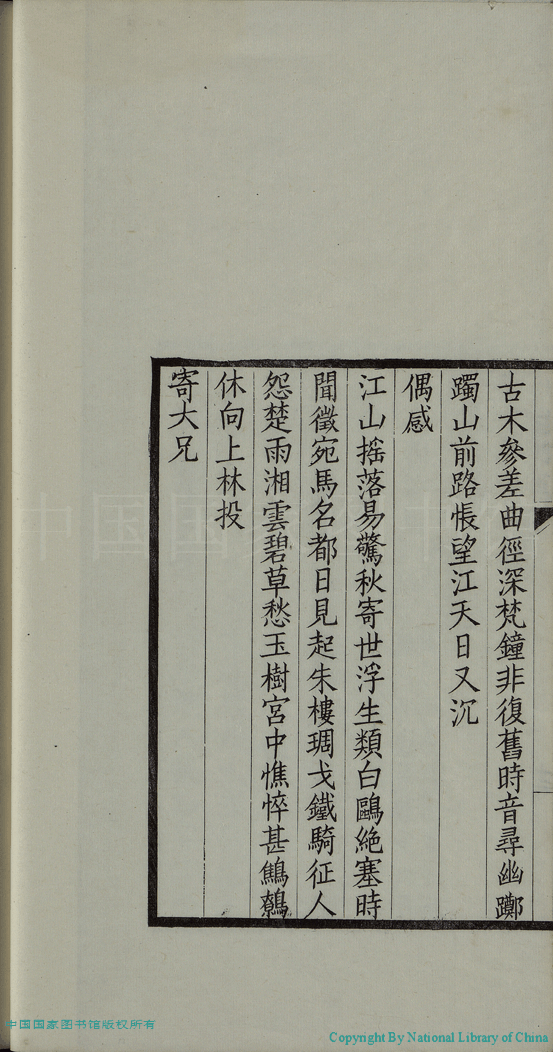 古木參差曲徑深梵鐘非復舊時音尋幽躑
躅山前路悵望江天日又沉
偶感
江山搖落易驚秋寄世浮生類白鷗絶塞時
聞徵宛馬名都日見起朱樓琱戈鐵騎征人
怨楚雨湘雲碧草愁玉樹宮中憔悴甚鷦鷯
休向上林投
寄大兄
中国国家图书馆版权所有
Copyright By National Library of China